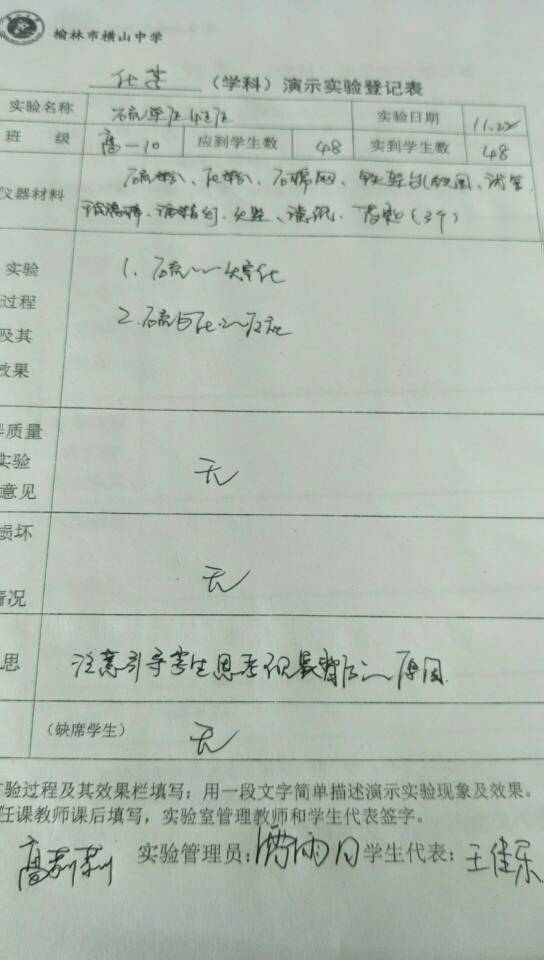 榆林市横山中学
化学（学科）演示实验登记表
实验名称 硫单质的性质 实验日期 11.22
班 级 高一10 应到学生数 48 实到学生数 48
仪器材料 硫粉、铁粉、石棉网、铁架台、试管
实验 1.硫的
过程 2.硫与
及其
效果
质量
实验 无
意见
损坏
无
情况
思 注意引导学生思考现象背后的原因
（缺席学生） 无
验过程及其效果栏填写：用一段文字简单描述演示实验现象及效果。
任课教师课后填写，实验室管理教师和学生代表签字。
高莉莉 实验管理员： 学生代表：王佳乐